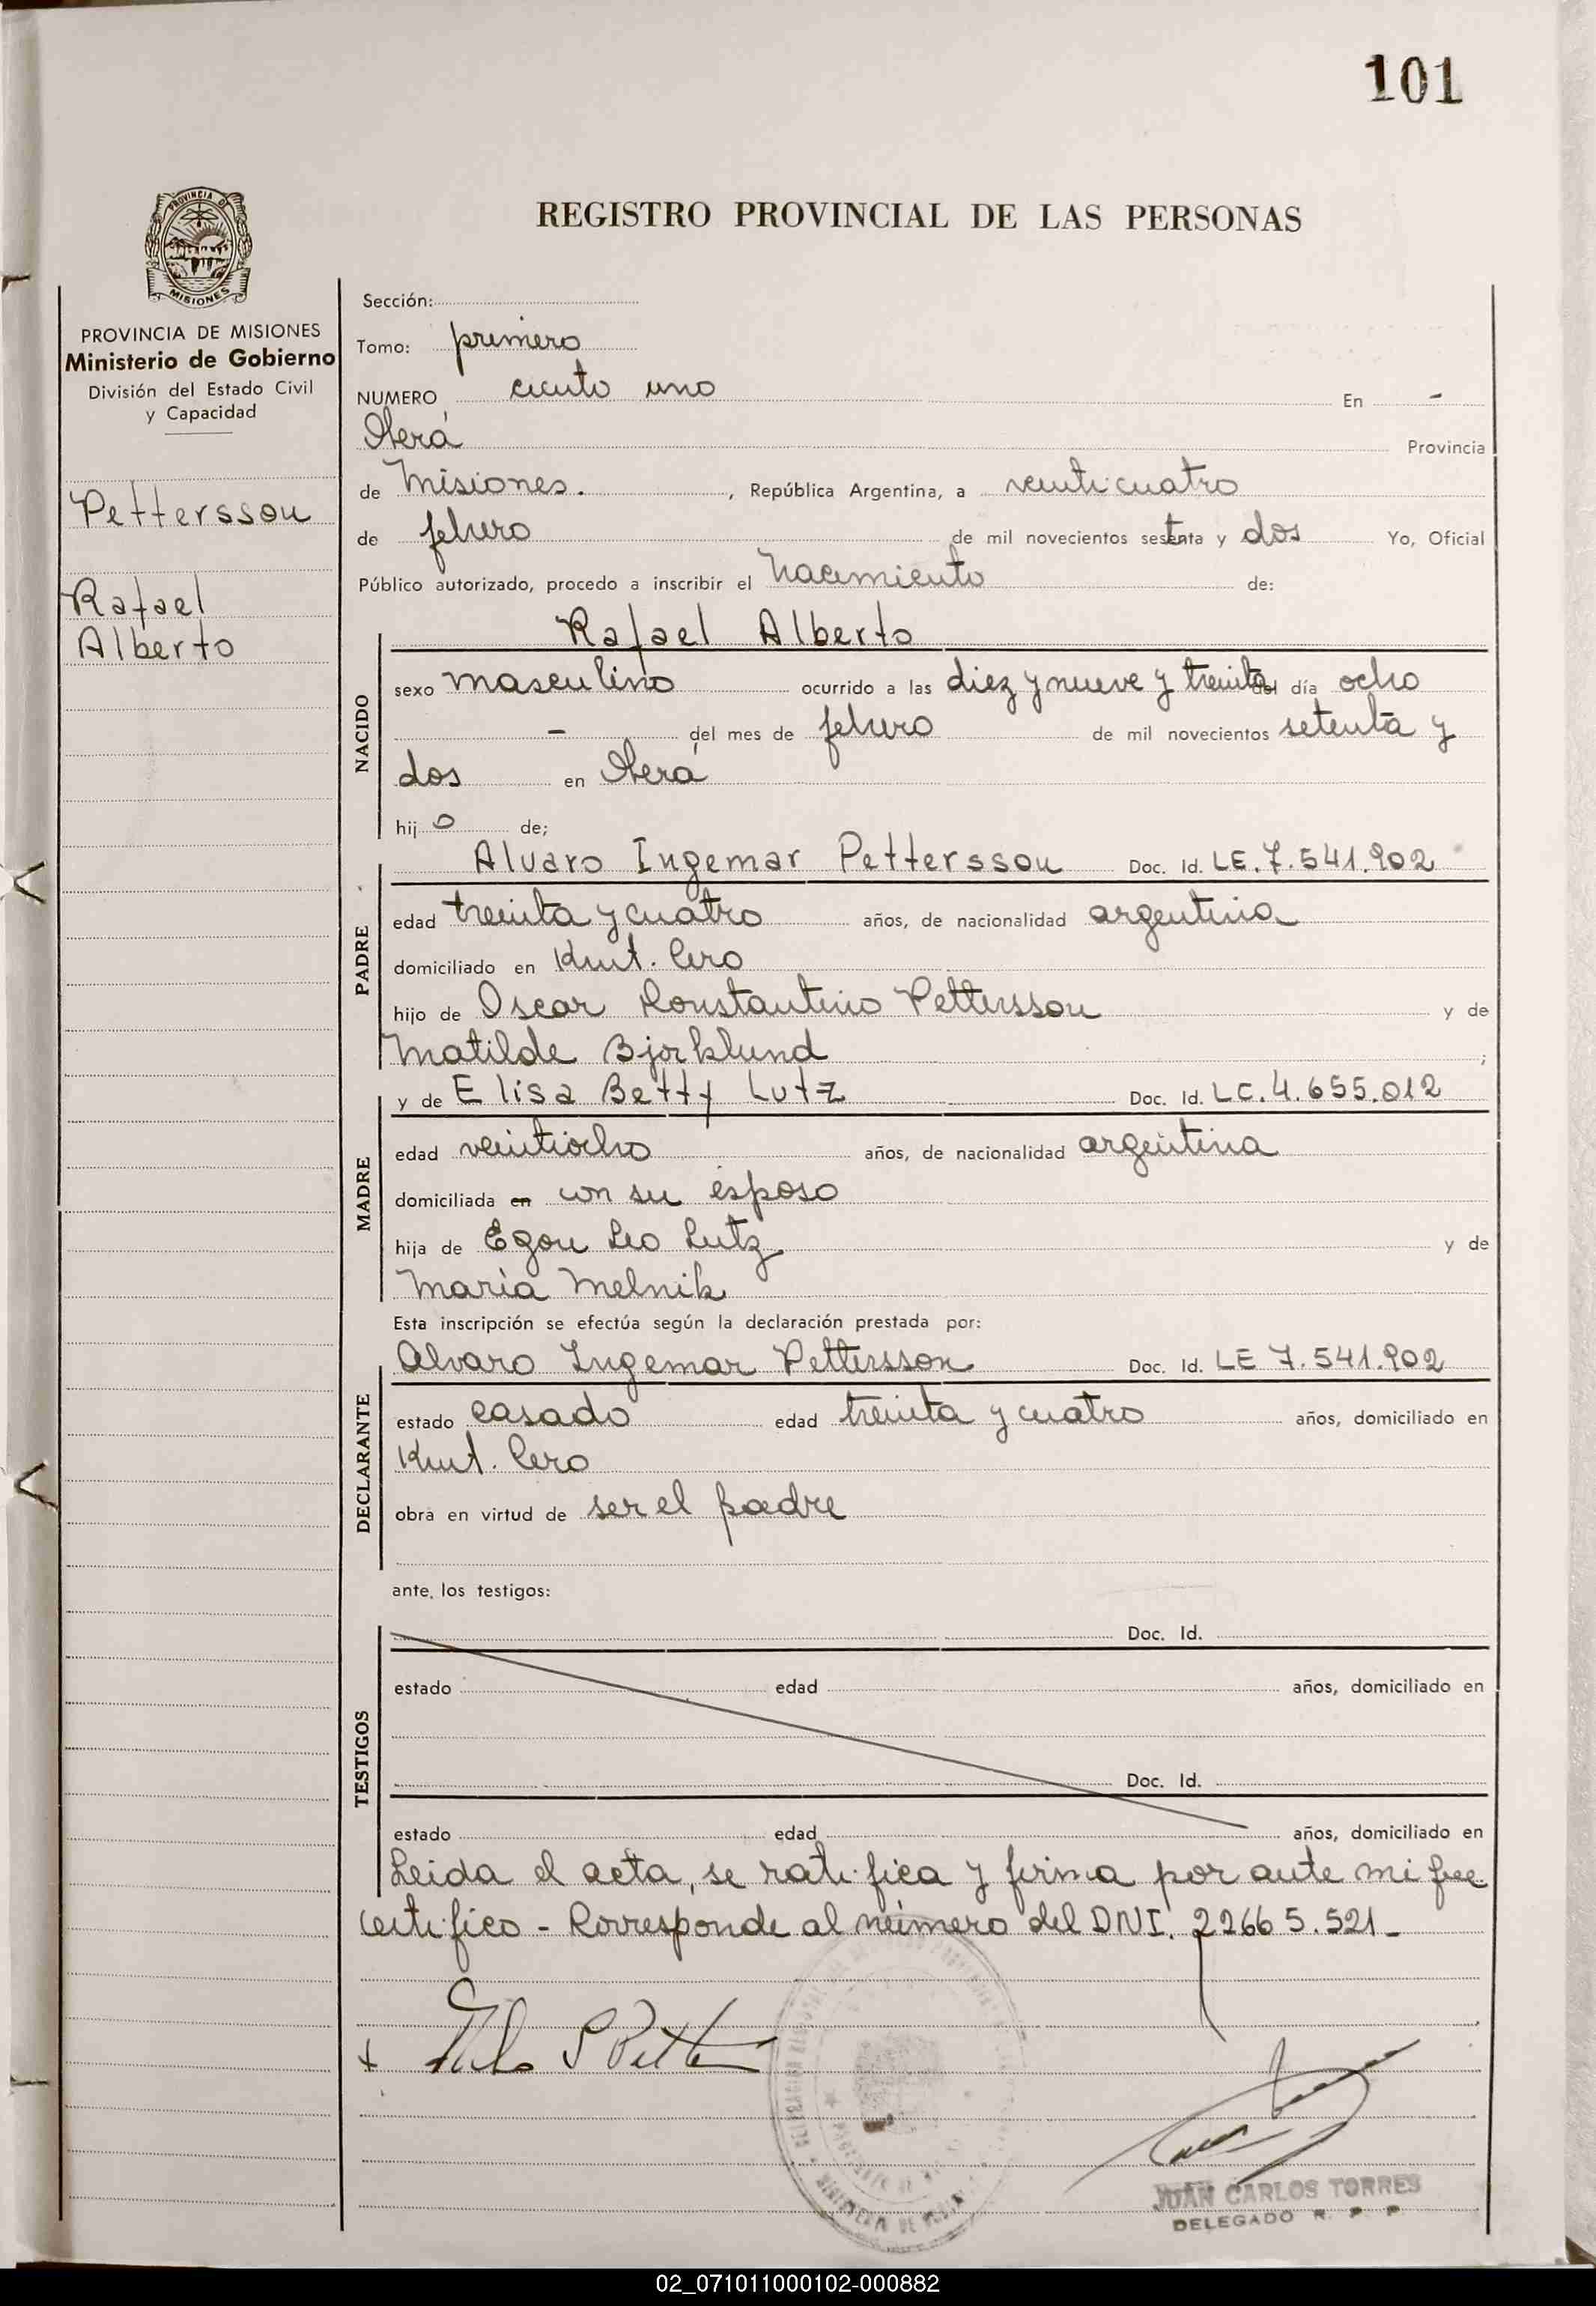 101
PROVINCIA DE
MISIONES
REGISTRO PROVINCIAL DE LAS PERSONAS
PROVINCIA DE MISIONES
Ministerio de Gobierno
División del Estado Civil
y Capacidad
Pettersson
Rafael
Alberto
Sección:
Tomo: primero
NUMERO ciento uno En -
Oberá Provincia
de Misiones. , República Argentina, a veinticuatro
de febrero de mil novecientos setenta y dos Yo, Oficial
Público autorizado, procedo a inscribir el Nacimiento de:
Rafael Alberto
NACIDO
sexo masculino ocurrido a las diez y nueve y treinta del día ocho
- del mes de febrero de mil novecientos setenta y
dos en Oberá
hijo de;
PADRE
Alvaro Ingemar Pettersson Doc. Id. LE.7.541.902
edad treinta y cuatro años, de nacionalidad argentina
domiciliado en Kmt. Cero
hijo de Oscar Konstantino Pettersson y de
Matilde Bjorklund ;
y de Elisa Betty Lutz Doc. Id. LC.4.655.012
MADRE
edad veintiocho años, de nacionalidad argentina
domiciliada en con su esposo
hija de Egon Leo Lutz y de
María Melnik
Esta inscripción se efectúa según la declaración prestada por:
DECLARANTE
Alvaro Ingemar Pettersson Doc. Id. LE 7.541.902
estado casado edad treinta y cuatro años, domiciliado en
Kmt. Cero
obra en virtud de ser el padre
ante, los testigos:
TESTIGOS
Doc. Id.
estado edad años, domiciliado en
Doc. Id.
estado edad años, domiciliado en
Leida el acta, se ratifica y firma por ante mi que
certifico - Corresponde al número del DNI. 22665.521-
JUAN CARLOS TORRES
DELEGADO R. P. P.
02_071011000102-000882